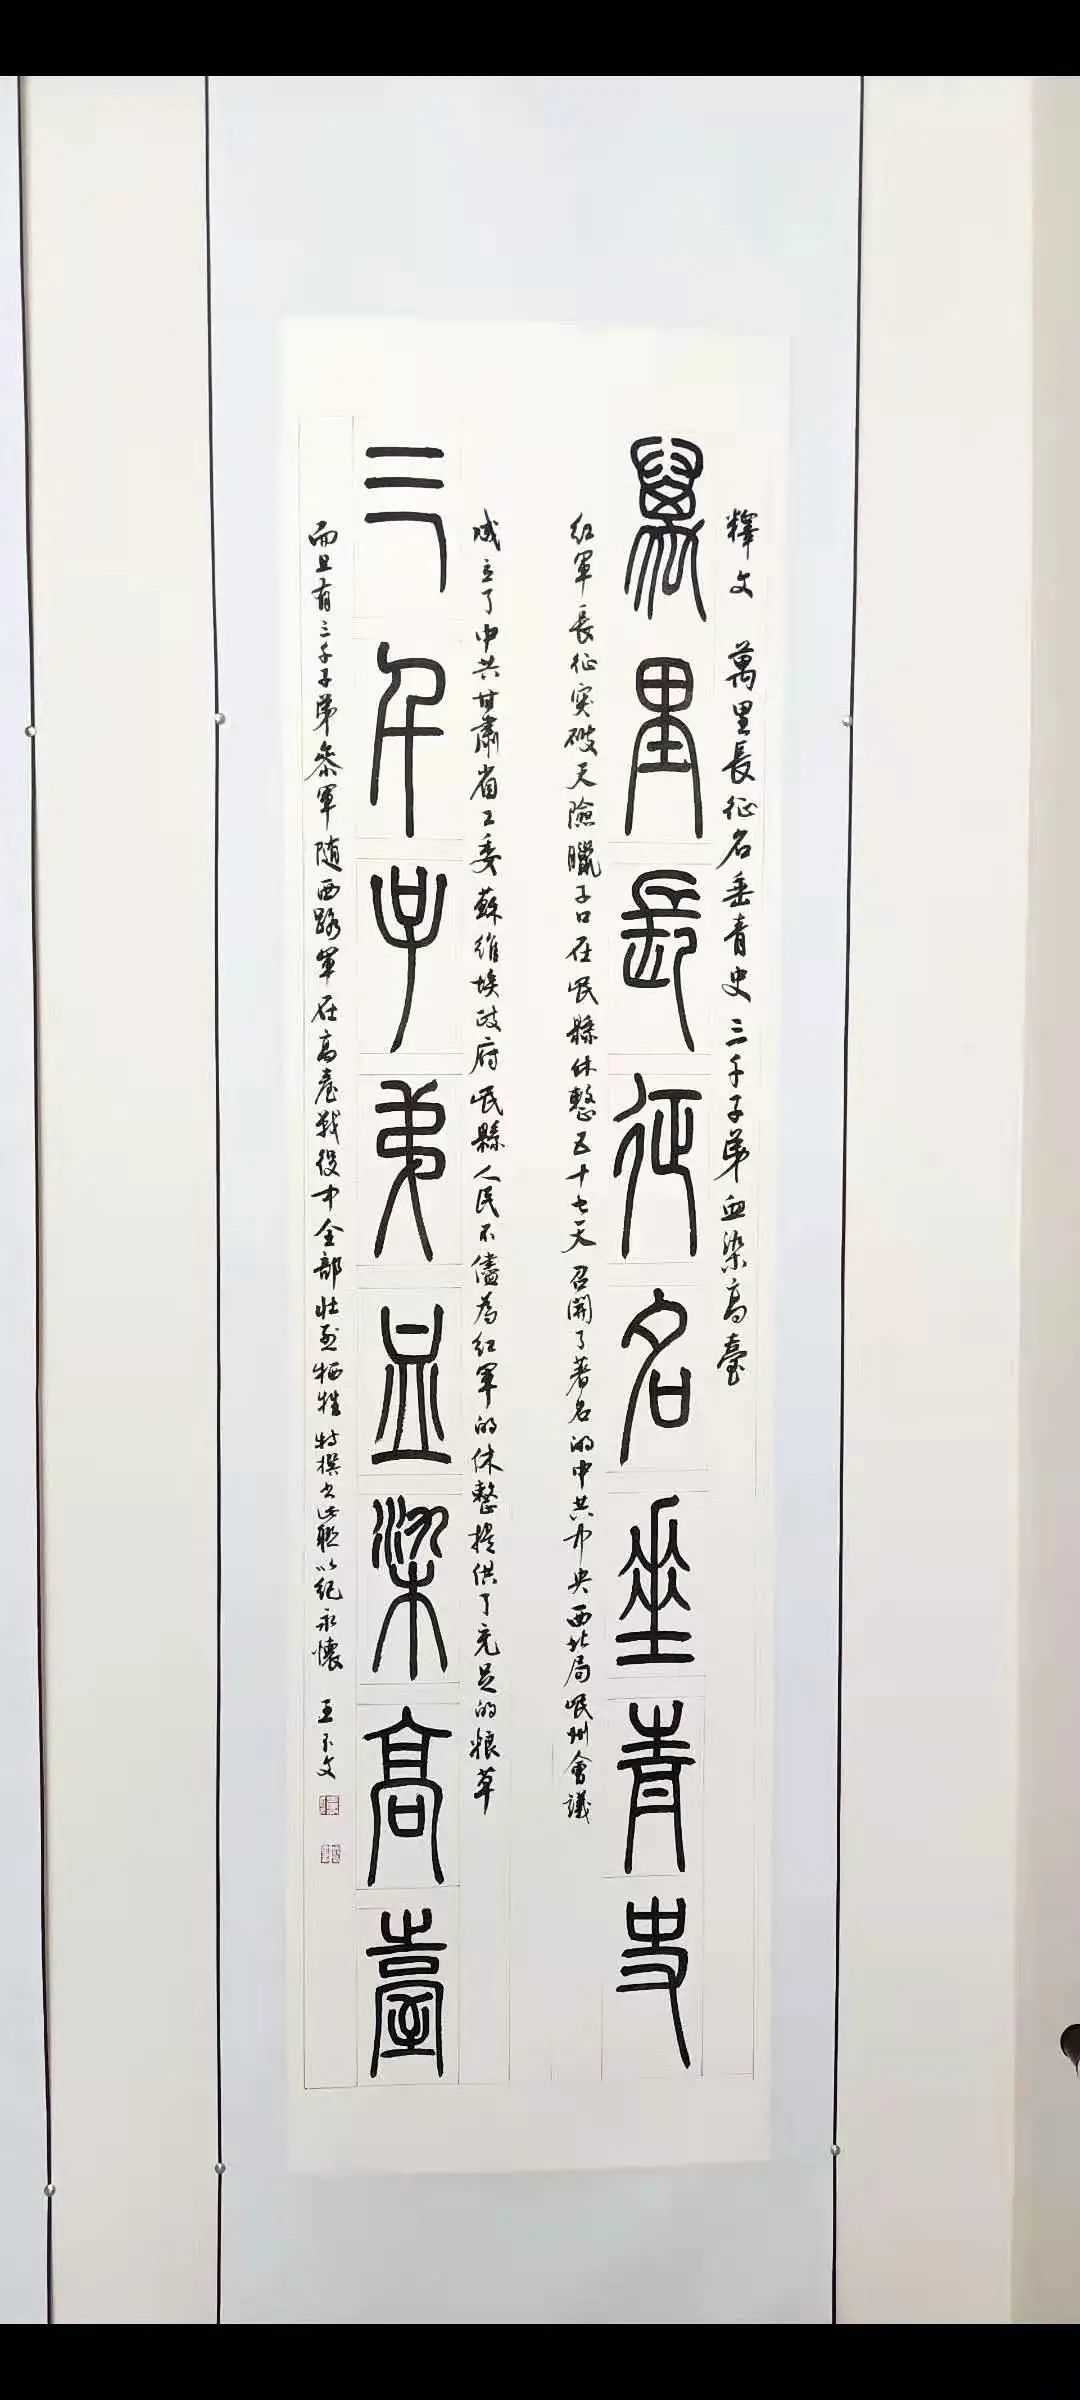 釋文 萬里長征名垂青史三千子弟血染高臺
萬里長征名垂青史
紅軍長征突破天險臘子口在岷縣休整五十七天召開了著名的中共中央西北局岷州會議
成立了中共甘肅省工委蘇維埃政府岷縣人民不儘為紅軍的休整提供了充足的糧草
三千子弟血染高臺
而且有三千子弟參軍隨西路軍在高臺戰役中全部壯烈犧牲特撰書此聯以紀永懷 王不文